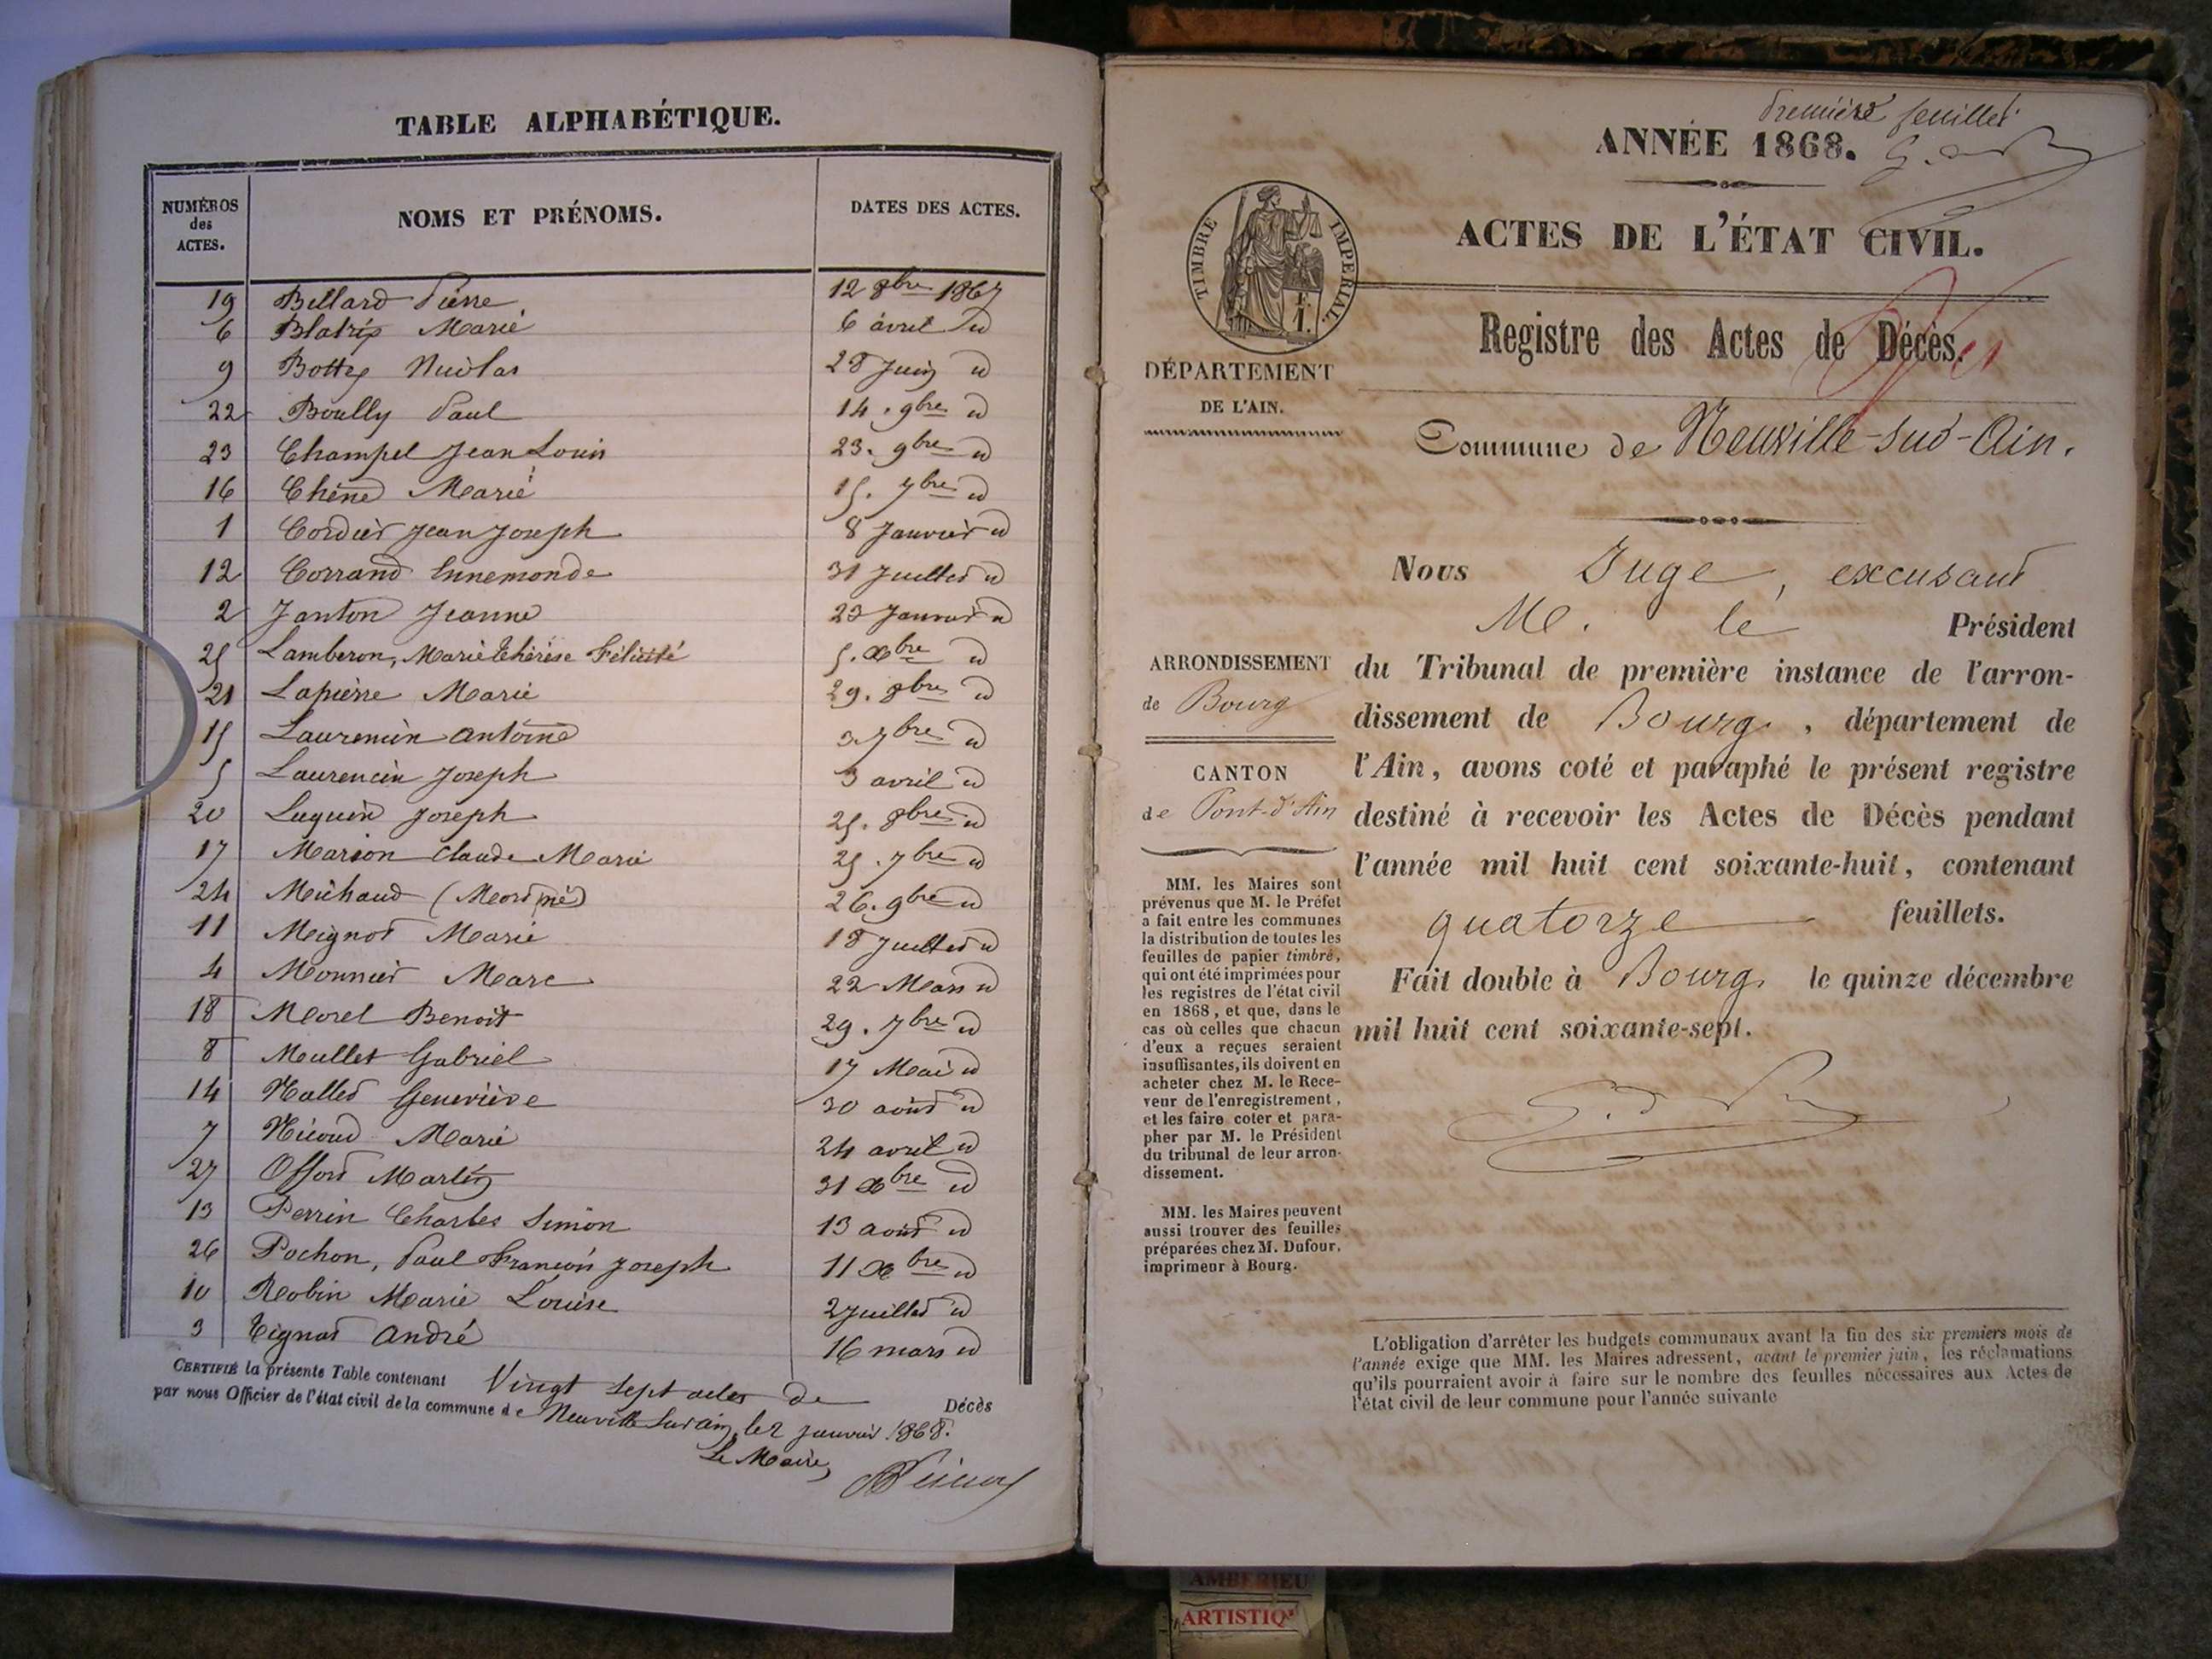 TABLE ALPHABÉTIQUE.
NUMÉROS des ACTES. NOMS ET PRÉNOMS. DATES DES ACTES.
19 Billard Pierre 12 8bre 1867
6 Blatrix Marie 6 avril id
9 Bottex Nicolas 28 Juin id
22 Boully Paul 14. 9bre id
23 Champel Jean Louis 23. 9bre id
16 Chêne Marie 15. 7bre id
1 Cordier Jean Joseph 8 Janvier id
12 Corrand Ennemonde 31 Juillet id
2 Janton Jeanne 23 Janvier id
25 Lamberon, Marie Thérèse Félicité 5. Xbre id
21 Lapierre Marie 29. 8bre id
15 Laurencin Antoine 3. 7bre id
5 Laurencin Joseph 3 avril id
20 Luquin Joseph 25. 8bre id
17 Marion Claude Marie 25. 7bre id
24 Michaud (Mort né) 26. 9bre id
11 Mignot Marie 18 Juillet id
4 Monnier Marc 22 Mars id
18 Morel Benoit 29. 7bre id
8 Mullet Gabriel 17 Mai id
14 Nallet Geneviève 30 août id
7 Nicoud Marie 24 avril id
27 Offort Martin 31 Xbre id
13 Perrin Charles Simon 13 août id
26 Pochon, Paul François Joseph 11 Xbre id
10 Robin Marie Louise 2 Juillet id
3 Tignat André 16 mars id
CERTIFIÉ la présente Table contenant Vingt sept actes de Décès
par nous Officier de l'état civil de la commune de Neuville sur ain, le 2 janvier 1868.
Le Maire,
Première feuillet
ANNÉE 1868.
ACTES DE L'ÉTAT CIVIL.
TIMBRE IMPERIAL.
Registre des Actes de Décès.
DÉPARTEMENT
DE L'AIN.
Commune de Neuville-sur-Ain.
Nous Juge, excusant
M. le Président
du Tribunal de première instance de l'arron-
dissement de Bourg, département de
l'Ain, avons coté et paraphé le présent registre
destiné à recevoir les Actes de Décès pendant
l'année mil huit cent soixante-huit, contenant
quatorze feuillets.
Fait double à Bourg, le quinze décembre
mil huit cent soixante-sept.
ARRONDISSEMENT
de Bourg
CANTON
de Pont-d'Ain
MM. les Maires sont
prévenus que M. le Préfet
a fait entre les communes
la distribution de toutes les
feuilles de papier timbré,
qui ont été imprimées pour
les registres de l'état civil
en 1868, et que, dans le
cas où celles que chacun
d'eux a reçues seraient
insuffisantes, ils doivent en
acheter chez M. le Rece-
veur de l'enregistrement,
et les faire coter et para-
pher par M. le Président
du tribunal de leur arron-
dissement.
MM. les Maires peuvent
aussi trouver des feuilles
préparées chez M. Dufour,
imprimeur à Bourg.
L'obligation d'arrêter les budgets communaux avant la fin des six premiers mois de
l'année exige que MM. les Maires adressent, avant le premier juin, les réclamations
qu'ils pourraient avoir à faire sur le nombre des feuilles nécessaires aux Actes de
l'état civil de leur commune pour l'année suivante
AMBERIEU
ARTISTIQ